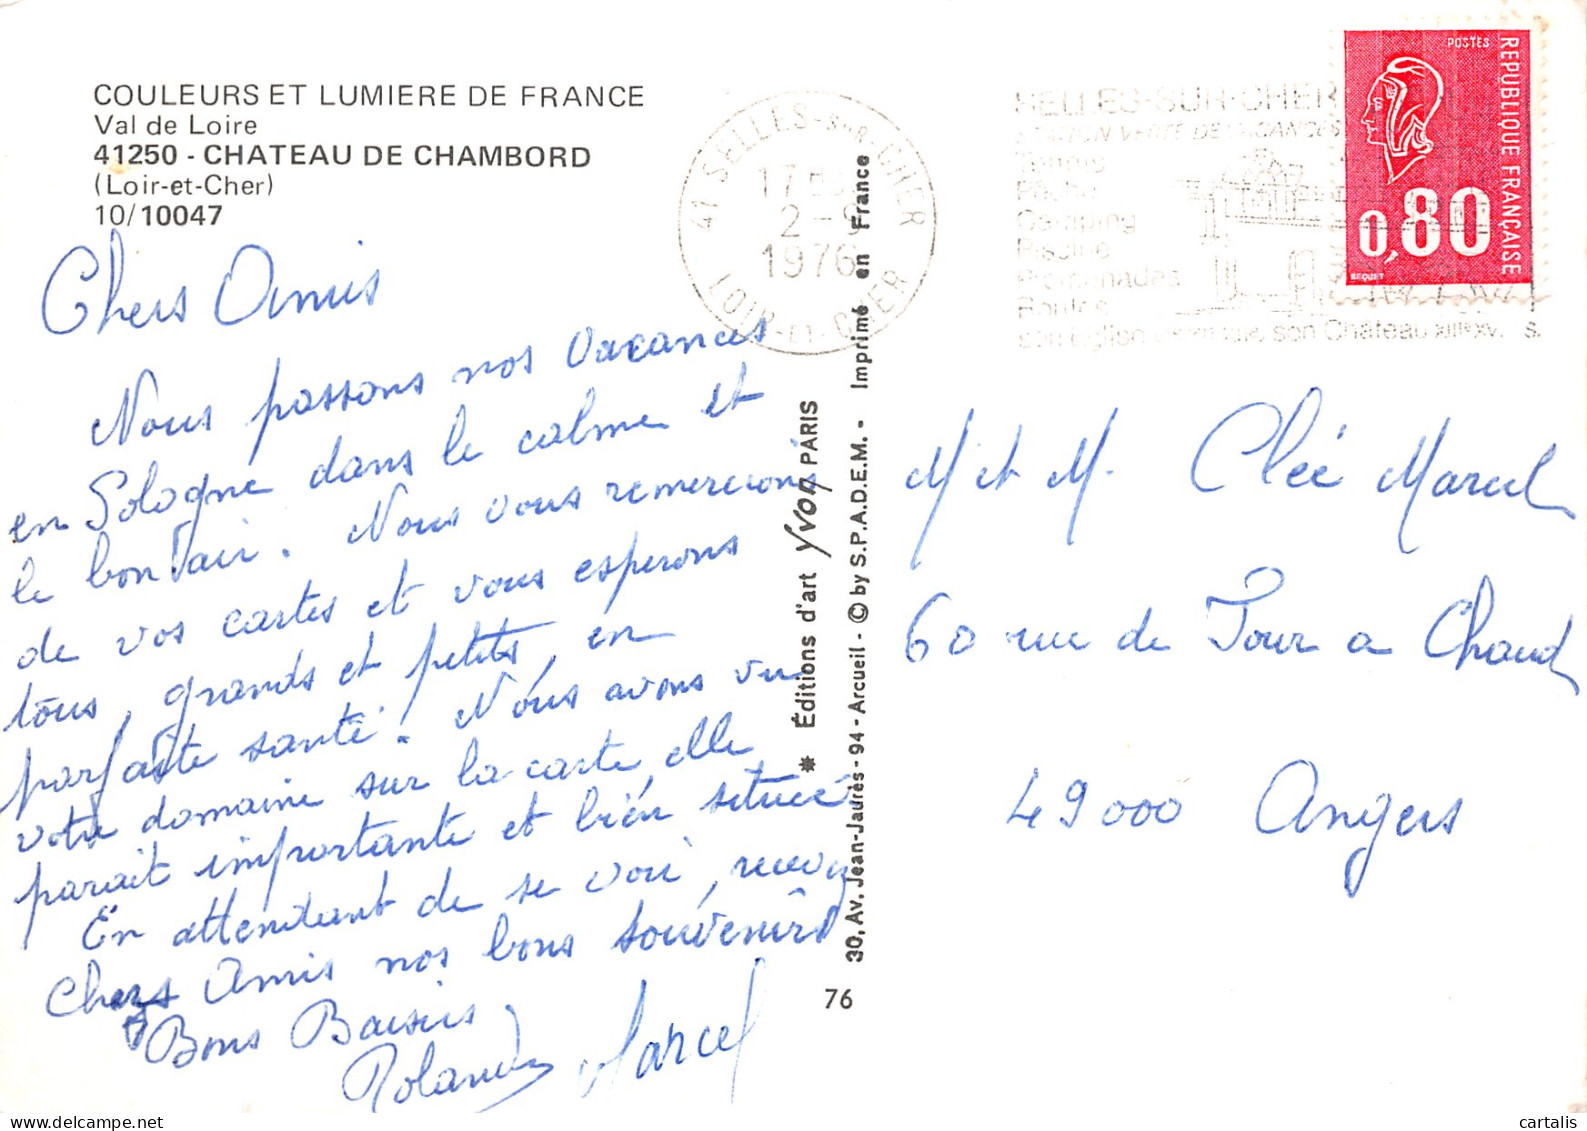 COULEURS ET LUMIERE DE FRANCE
Val de Loire
41250 - CHATEAU DE CHAMBORD
(Loir-et-Cher)
10/10047
Chers Amis
Nous passons nos vacances
en Sologne dans le calme et
le bon air. Nous vous remercions
de vos cartes et vous esperons
tous, grands et petits, en
parfaite santé. Nous avons vu
votre domaine sur la carte, elle
parait importante et bien située
En attendant de se voir, recevez
Chers Amis nos bons souvenirs
Bons Baisers
Rolande Marcel
41 SELLES-SUR-CHER
17
2-9
1976
LOIR-ET-CHER
SELLES-SUR-CHER
STATION VERTE DE VACANCES
Tennis
Pêche
Camping
Piscine
Promenades
Routes
son Eglise son Chateau XIII XV S.
POSTES
REPUBLIQUE FRANÇAISE
0,80
BEQUET
* Éditions d'art Yvon PARIS
30, Av. Jean-Jaurès - 94 - Arcueil - © by S.P.A.D.E.M. - Imprimé en France
76
M et M. Cléé Marcel
60 rue de Four a Chaud
49000 Angers
cartalis
delcampe.net